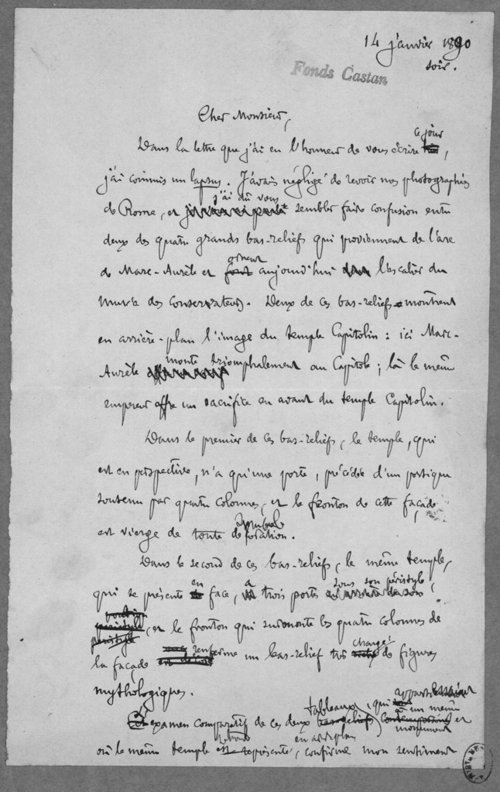 14 janvier 1890
soir.
Fonds Castan
Cher Monsieur,
ce jour
Dans la lettre que j'ai eu l'honneur de vous écrire,
j'ai commis un lapsus. J'avais négligé de revoir nos photographies
j'ai dû vous
de Rome, et sembler faire confusion entre
deux des quatre grands bas-reliefs qui proviennent de l'arc
ornent
de Marc-Aurèle et font aujourd'hui l'escalier du
musée des Conservateurs. Deux de ces bas-reliefs montrent
en arrière-plan l'image du temple Capitolin : ici Marc-
monte
Aurèle triomphalement au Capitole ; là le même
empereur offre un sacrifice en avant du temple Capitolin.
Dans le premier de ces bas-reliefs, le temple, qui
est en perspective, n'a qu'une porte, précédée d'un portique
soutenu par quatre colonnes, et le fronton de cette façade
est vierge de toute décoration.
Dans le second de ces bas-reliefs, le même temple,
en a sous son péristyle
qui se présente face, trois portes
portique
péristyle
péristyle, et le fronton qui surmonte les quatre colonnes de
chargé
la façade renferme un bas-relief très de figures
mythologiques.
tableaux, qui appartiennent
à un même
examen comparatif de ces deux bas-reliefs contemporains et
monument
en arrière-plan
où le même temple est représenté, confirme mon sentiment